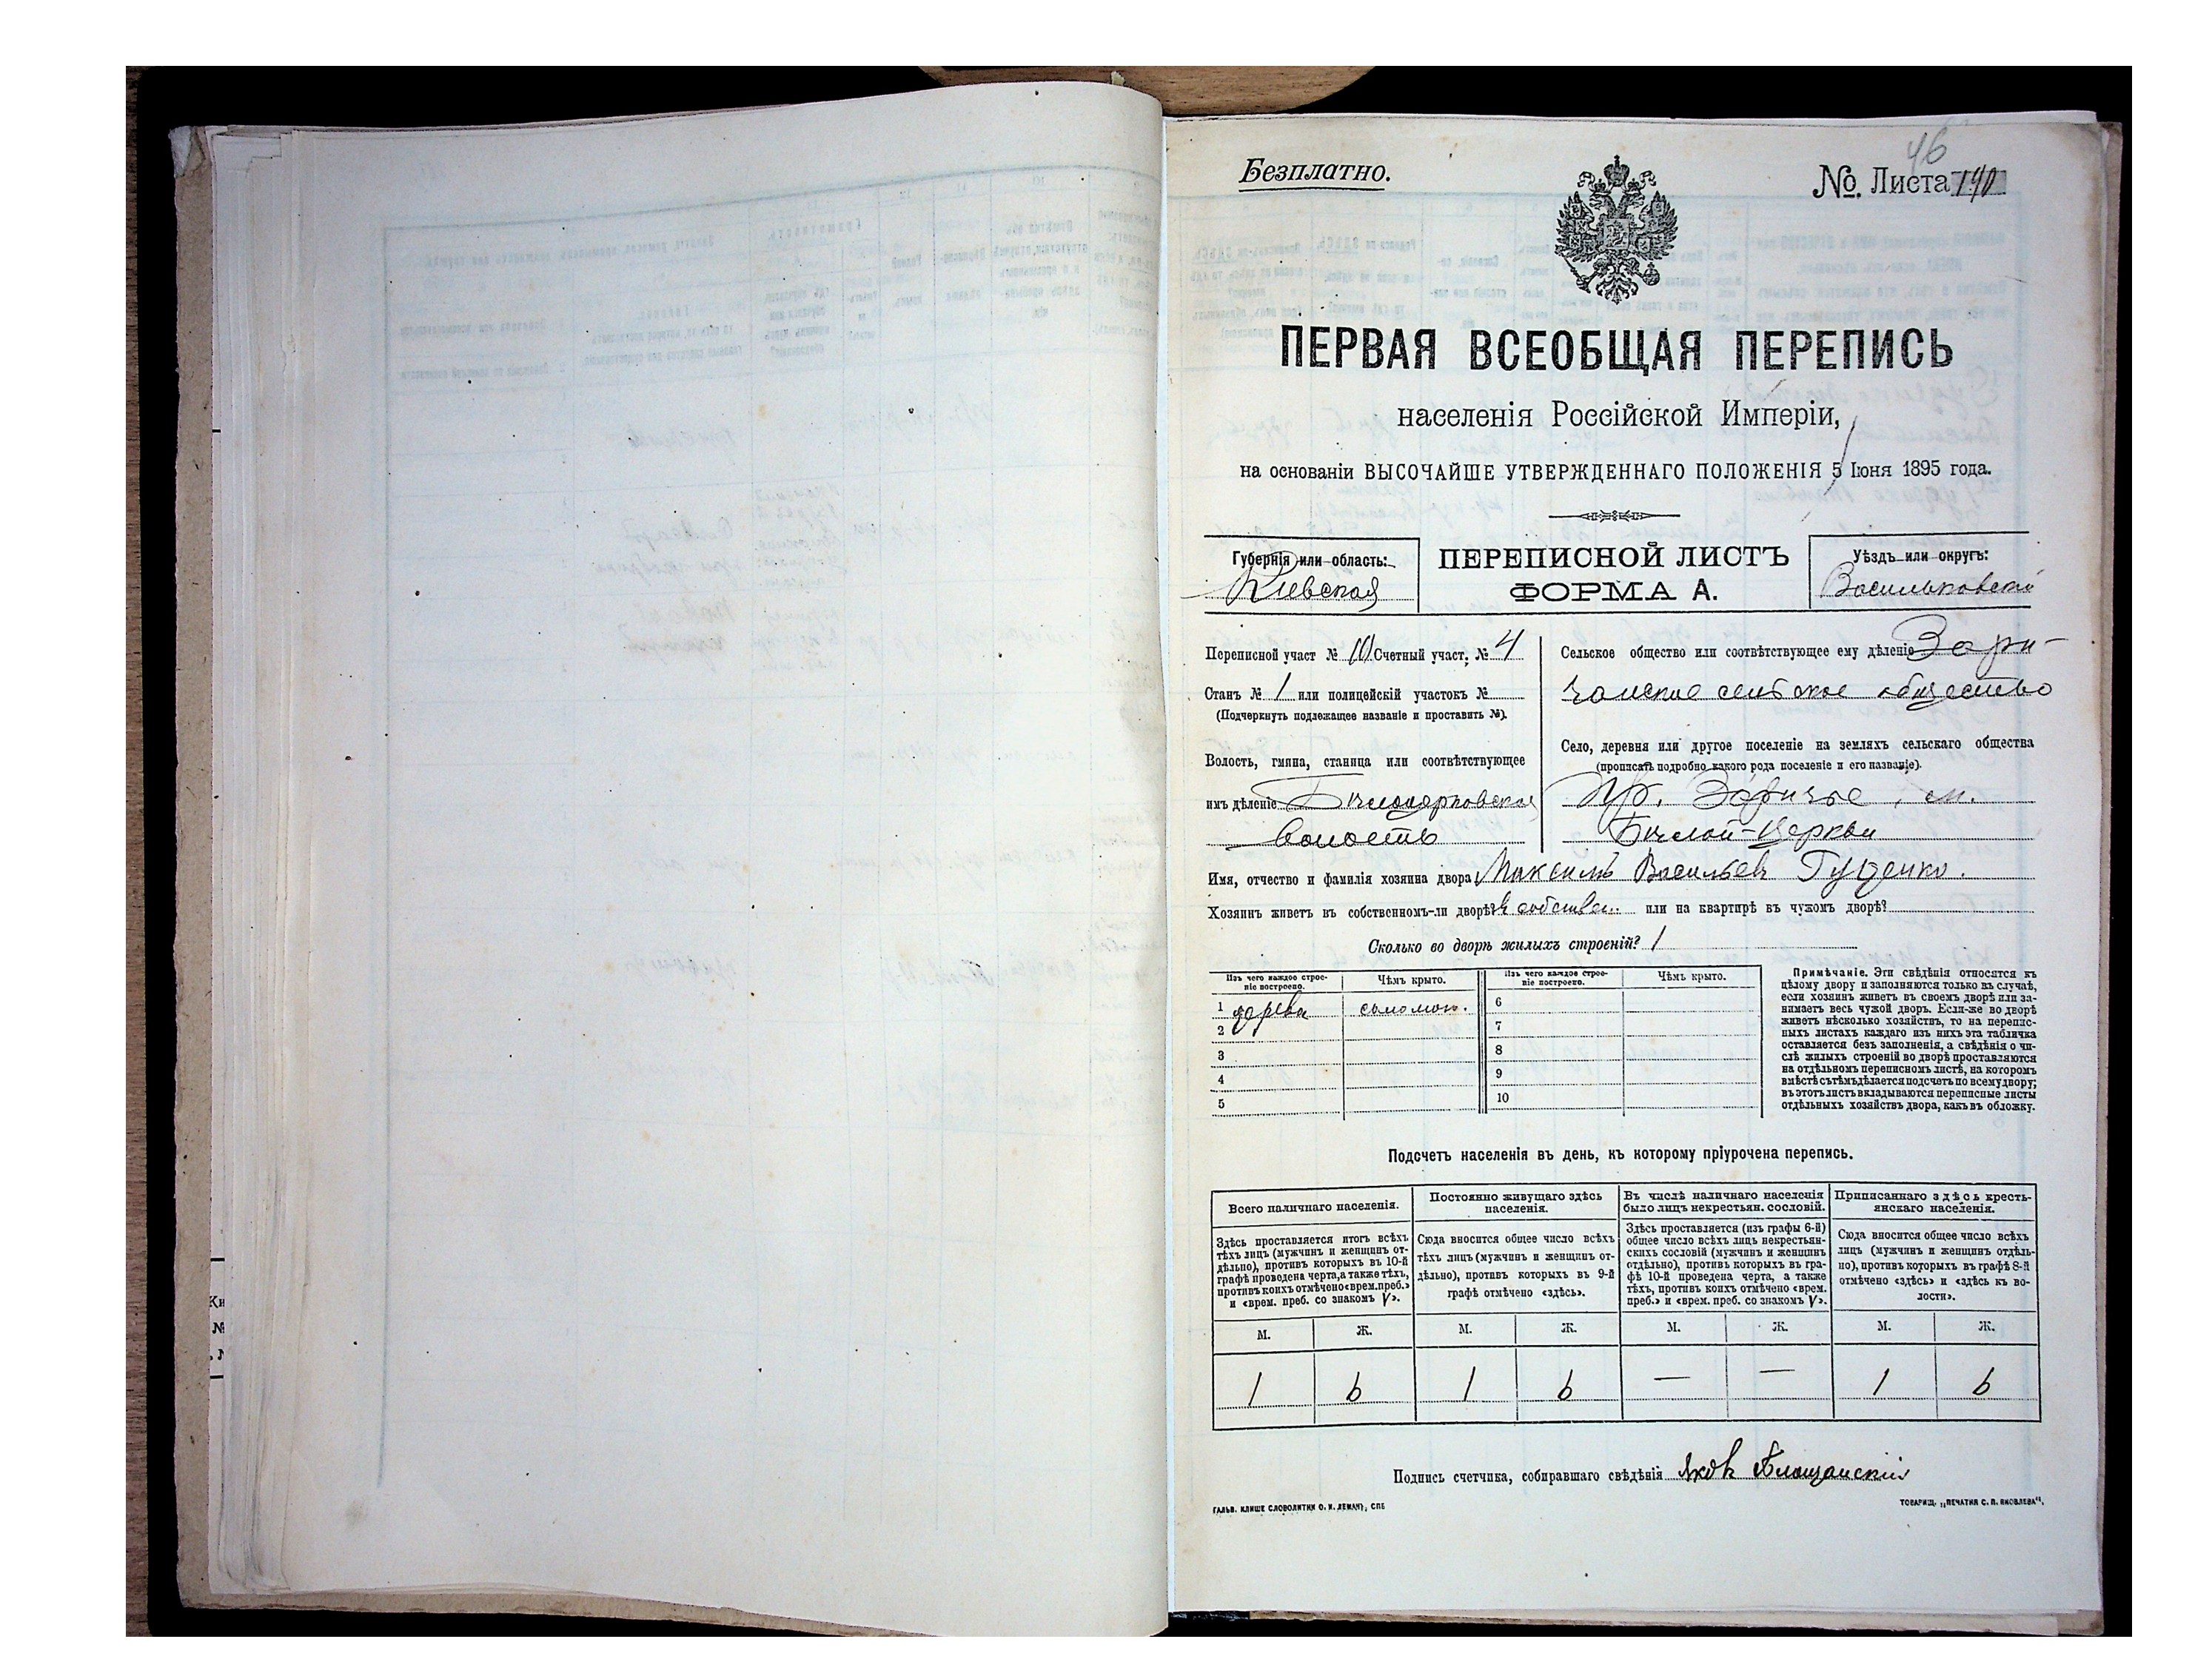 46
Безплатно.
№ Листа 140
ПЕРВАЯ ВСЕОБЩАЯ ПЕРЕПИСЬ
населенія Россійской Имперіи,
на основаніи ВЫСОЧАЙШЕ УТВЕРЖДЕННАГО ПОЛОЖЕНІЯ 5 Іюня 1895 года.
Губернія или область:
Кіевская
ПЕРЕПИСНОЙ ЛИСТЪ
ФОРМА А.
Уѣздъ или округъ:
Васильковскій
Переписной участ № 10 Счетный участ. № 4
Станъ № 1 или полицейскій участокъ №
(Подчеркнуть подлежащее названіе и проставить №).
Волость, гмина, станица или соотвѣтствующее
имъ дѣленіе Бѣлоцерковская
волость
Сельское общество или соотвѣтствующее ему дѣленіе Зари-
чанское сельское общество
Село, деревня или другое поселеніе на земляхъ сельскаго общества
(прописать подробно какого рода поселеніе и его названіе).
Пр. Заричье, м.
Бѣлой-Церкви
Имя, отчество и фамилія хозяина двора Максимъ Васильевъ Гуценко.
Хозяинъ живетъ въ собственномъ-ли дворѣ? въ собствен. или на квартирѣ въ чужомъ дворѣ?
Сколько во дворѣ жилыхъ строеній? 1
Изъ чего каждое строе-
ніе построено.
Чѣмъ крыто.
Изъ чего каждое строе-
ніе построено.
Чѣмъ крыто.
1 дерева соломою. 6
2 7
3 8
4 9
5 10
Примѣчаніе. Эти свѣдѣнія относятся къ
цѣлому двору и заполняются только въ случаѣ,
если хозяинъ живетъ въ своемъ дворѣ или за-
нимаетъ весь чужой дворъ. Если-же во дворѣ
живетъ нѣсколько хозяйствъ, то на перепис-
ныхъ листахъ каждаго изъ нихъ эта табличка
оставляется безъ заполненія, а свѣдѣнія о чи-
слѣ жилыхъ строеній во дворѣ проставляются
на отдѣльномъ переписномъ листѣ, на которомъ
вмѣстѣ съ тѣмъ дѣлается подсчетъ по всему двору;
въ этотъ листъ вкладываются переписные листы
отдѣльныхъ хозяйствъ двора, какъ въ обложку.
Подсчетъ населенія въ день, къ которому пріурочена перепись.
Всего наличнаго населенія.
Здѣсь проставляется итогъ всѣхъ
тѣхъ лицъ (мужчинъ и женщинъ от-
дѣльно), противъ которыхъ въ 10-й
графѣ проведена черта, а также тѣхъ,
противъ коихъ отмѣчено «врем. преб.»
и «врем. преб. со знакомъ V».
Постоянно живущаго здѣсь
населенія.
Сюда вносится общее число всѣхъ
тѣхъ лицъ (мужчинъ и женщинъ от-
дѣльно), противъ которыхъ въ 9-й
графѣ отмѣчено «здѣсь».
Въ числѣ наличнаго населенія
было лицъ некрестьян. сословій.
Здѣсь проставляется (изъ графы 6-й)
общее число всѣхъ лицъ некрестьян-
скихъ сословій (мужчинъ и женщинъ
отдѣльно), противъ которыхъ въ гра-
фѣ 10-й проведена черта, а также
тѣхъ, противъ коихъ отмѣчено «врем.
преб.» и «врем. преб. со знакомъ V».
Приписаннаго здѣсь кресть-
янскаго населенія.
Сюда вносится общее число всѣхъ
лицъ (мужчинъ и женщинъ отдѣль-
но), противъ которыхъ въ графѣ 8-й
отмѣчено «здѣсь» и «здѣсь къ во-
лости».
М. Ж. М. Ж. М. Ж. М. Ж.
1 6 1 6 — — 1 6
Подпись счетчика, собиравшаго свѣдѣнія Яковъ Блощанскій
ГАЛЬВ. КЛИШЕ СЛОВОЛИТНИ О. И. ЛЕМАНЪ, СПБ
ТОВАРИЩ. „ПЕЧАТНЯ С. П. ЯКОВЛЕВА".